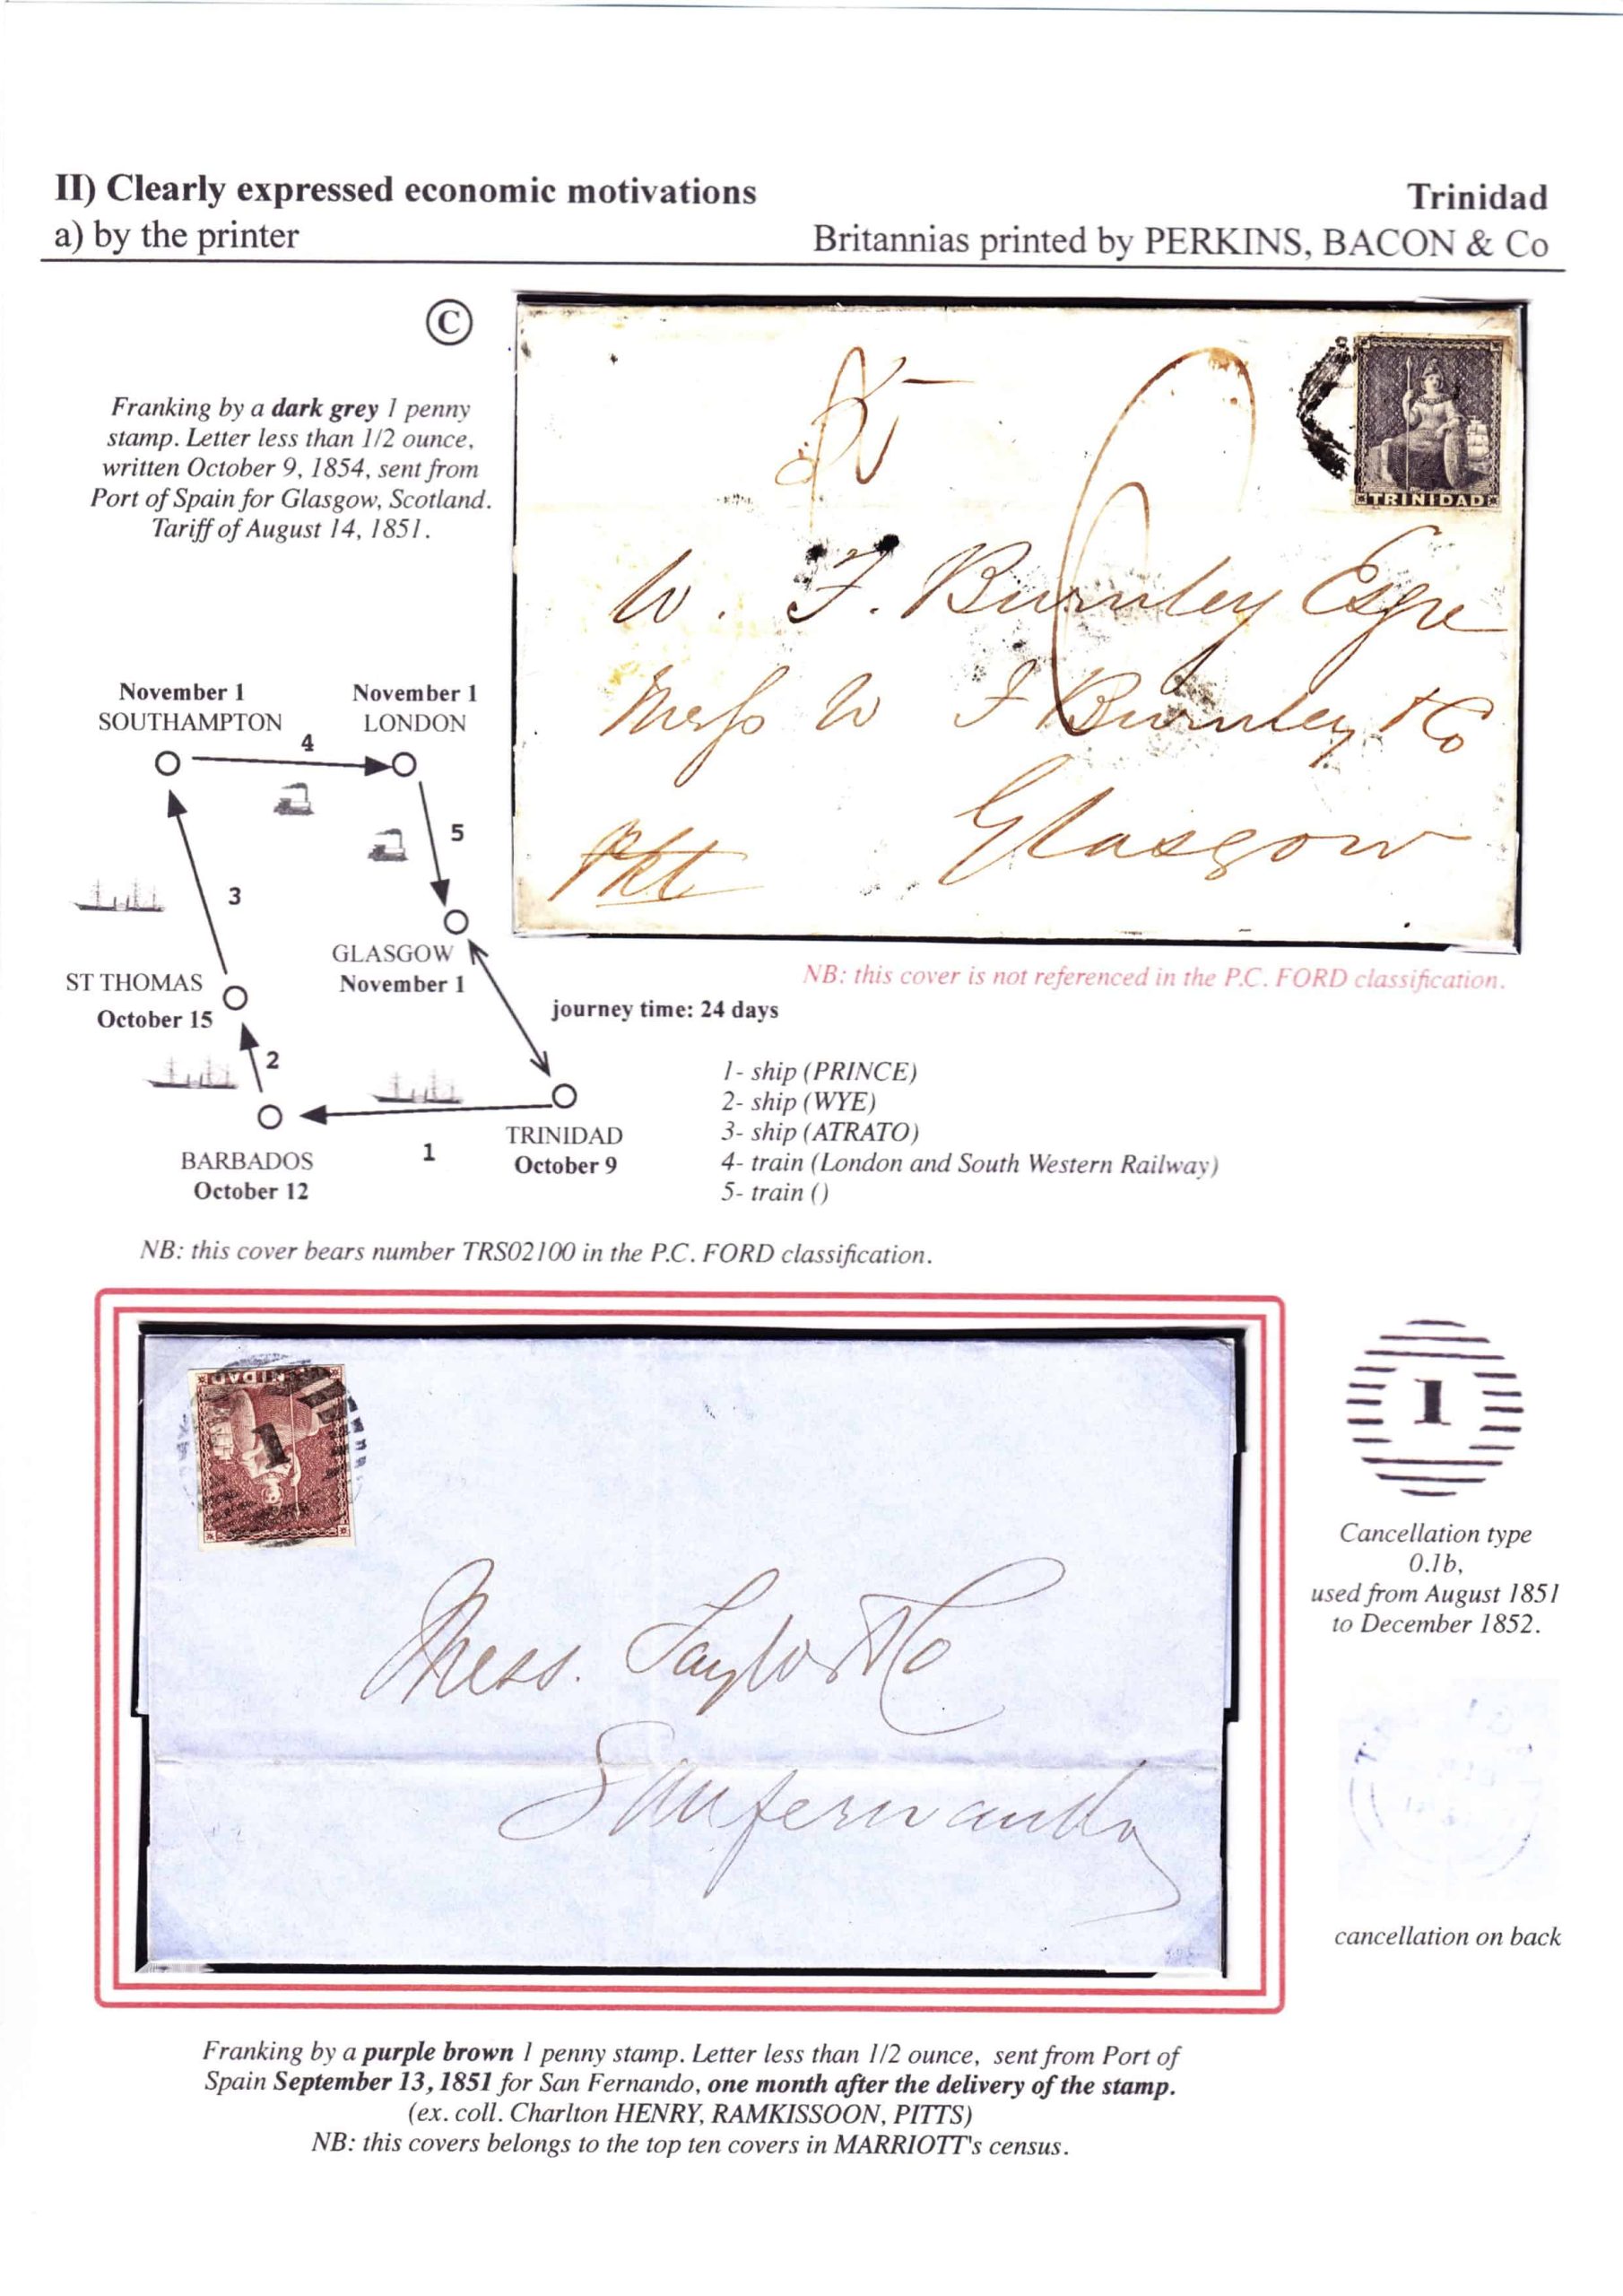 II) Clearly expressed economic motivations
Trinidad
a) by the printer
Britannias printed by PERKINS, BACON & Co
©
Franking by a dark grey 1 penny
stamp. Letter less than 1/2 ounce,
written October 9, 1854, sent from
Port of Spain for Glasgow, Scotland.
Tariff of August 14, 1851.
TRINIDAD
W. F. Burnley Esqre
Messs W F Burnley & Co
Glasgow
Pkt
NB: this cover is not referenced in the P.C. FORD classification.
November 1
SOUTHAMPTON
November 1
LONDON
4
5
3
GLASGOW
November 1
ST THOMAS
October 15
journey time: 24 days
2
1
BARBADOS
October 12
TRINIDAD
October 9
1- ship (PRINCE)
2- ship (WYE)
3- ship (ATRATO)
4- train (London and South Western Railway)
5- train ()
NB: this cover bears number TRS02100 in the P.C. FORD classification.
1
Mess. Taylor & Co
Sanfernando
1
Cancellation type
0.1b,
used from August 1851
to December 1852.
cancellation on back
Franking by a purple brown 1 penny stamp. Letter less than 1/2 ounce, sent from Port of
Spain September 13, 1851 for San Fernando, one month after the delivery of the stamp.
(ex. coll. Charlton HENRY, RAMKISSOON, PITTS)
NB: this covers belongs to the top ten covers in MARRIOTT's census.